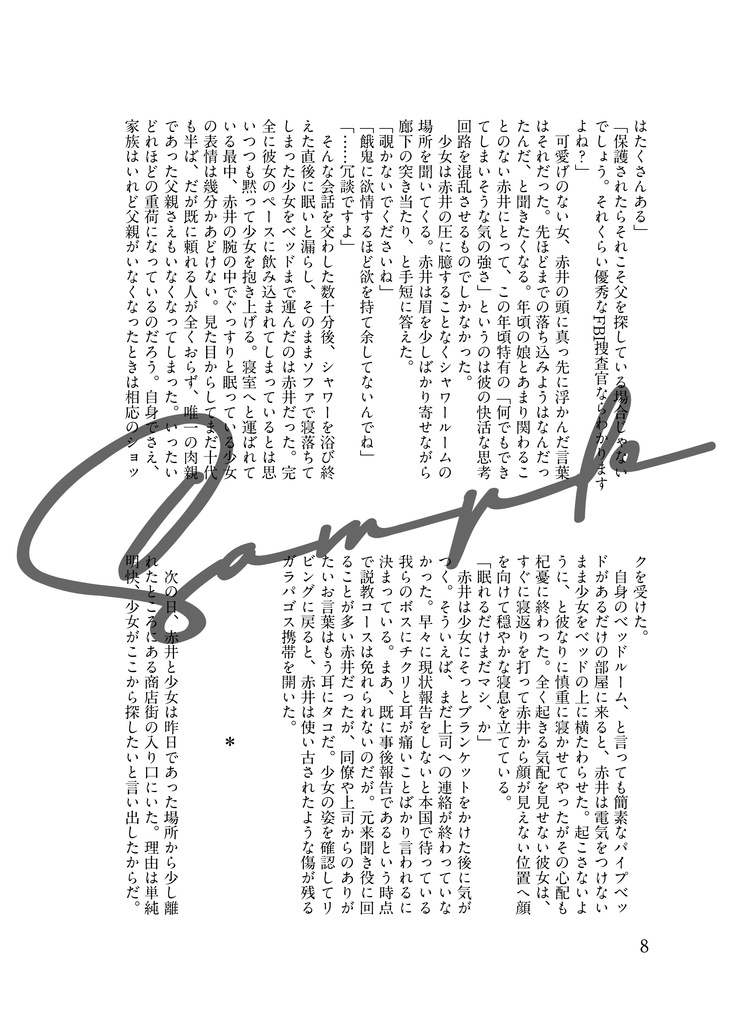 はたくさんある」
「保護されたらそれこそ父を探している場合じゃない
でしょう。それくらい優秀なFBI捜査官ならわかります
よね？」
　可愛げのない女、赤井の頭に真っ先に浮かんだ言葉
はそれだった。先ほどまでの落ち込みようはなんだっ
たんだ、と聞きたくなる。年頃の娘とあまり関わるこ
とのない赤井にとって、この年頃特有の「何でもでき
てしまいそうな気の強さ」というのは彼の快活な思考
回路を混乱させるものでしかなかった。
　少女は赤井の圧に臆することなくシャワールームの
場所を聞いてくる。赤井は眉を少しばかり寄せながら
廊下の突き当たり、と手短に答えた。
「覗かないでくださいね」
「餓鬼に欲情するほど欲を持て余してないんでね」
「……冗談ですよ」
　そんな会話を交わした数十分後、シャワーを浴び終
えた直後に眠いと漏らし、そのままソファで寝落ちて
しまった少女をベッドまで運んだのは赤井だった。完
全に彼女のペースに飲み込まれてしまっているとは思
いつつも黙って少女を抱き上げる。寝室へと運ばれて
いる最中、赤井の腕の中でぐっすりと眠っている少女
の表情は幾分かあどけない。見た目からしてまだ十代
も半ば、だが既に頼れる人が全くおらず、唯一の肉親
であった父親さえもいなくなってしまった。いったい
どれほどの重荷になっているのだろう。自身でさえ、
家族はいれど父親がいなくなったときは相応のショッ
クを受けた。
　自身のベッドルーム、と言っても簡素なパイプベッ
ドがあるだけの部屋に来ると、赤井は電気をつけない
まま少女をベッドの上に横たわらせた。起こさないよ
うに、と彼なりに慎重に寝かせてやったがその心配も
杞憂に終わった。全く起きる気配を見せない彼女は、
すぐに寝返りを打って赤井から顔が見えない位置へ顔
を向けて穏やかな寝息を立てている。
「眠れるだけまだマシ、か」
　赤井は少女にそっとブランケットをかけた後に気が
つく。そういえば、まだ上司への連絡が終わっていな
かった。早々に現状報告をしないと本国で待っている
我らのボスにチクリと耳が痛いことばかり言われるに
決まっている。まあ、既に事後報告であるという時点
で説教コースは免れられないのだが。元来聞き役に回
ることが多い赤井だったが、同僚や上司からのありが
たいお言葉はもう耳にタコだ。少女の姿を確認してリ
ビングに戻ると、赤井は使い古されたような傷が残る
ガラパゴス携帯を開いた。
＊
　次の日、赤井と少女は昨日であった場所から少し離
れたところにある商店街の入り口にいた。理由は単純
明快、少女がここから探したいと言い出したからだ。
8
Sample